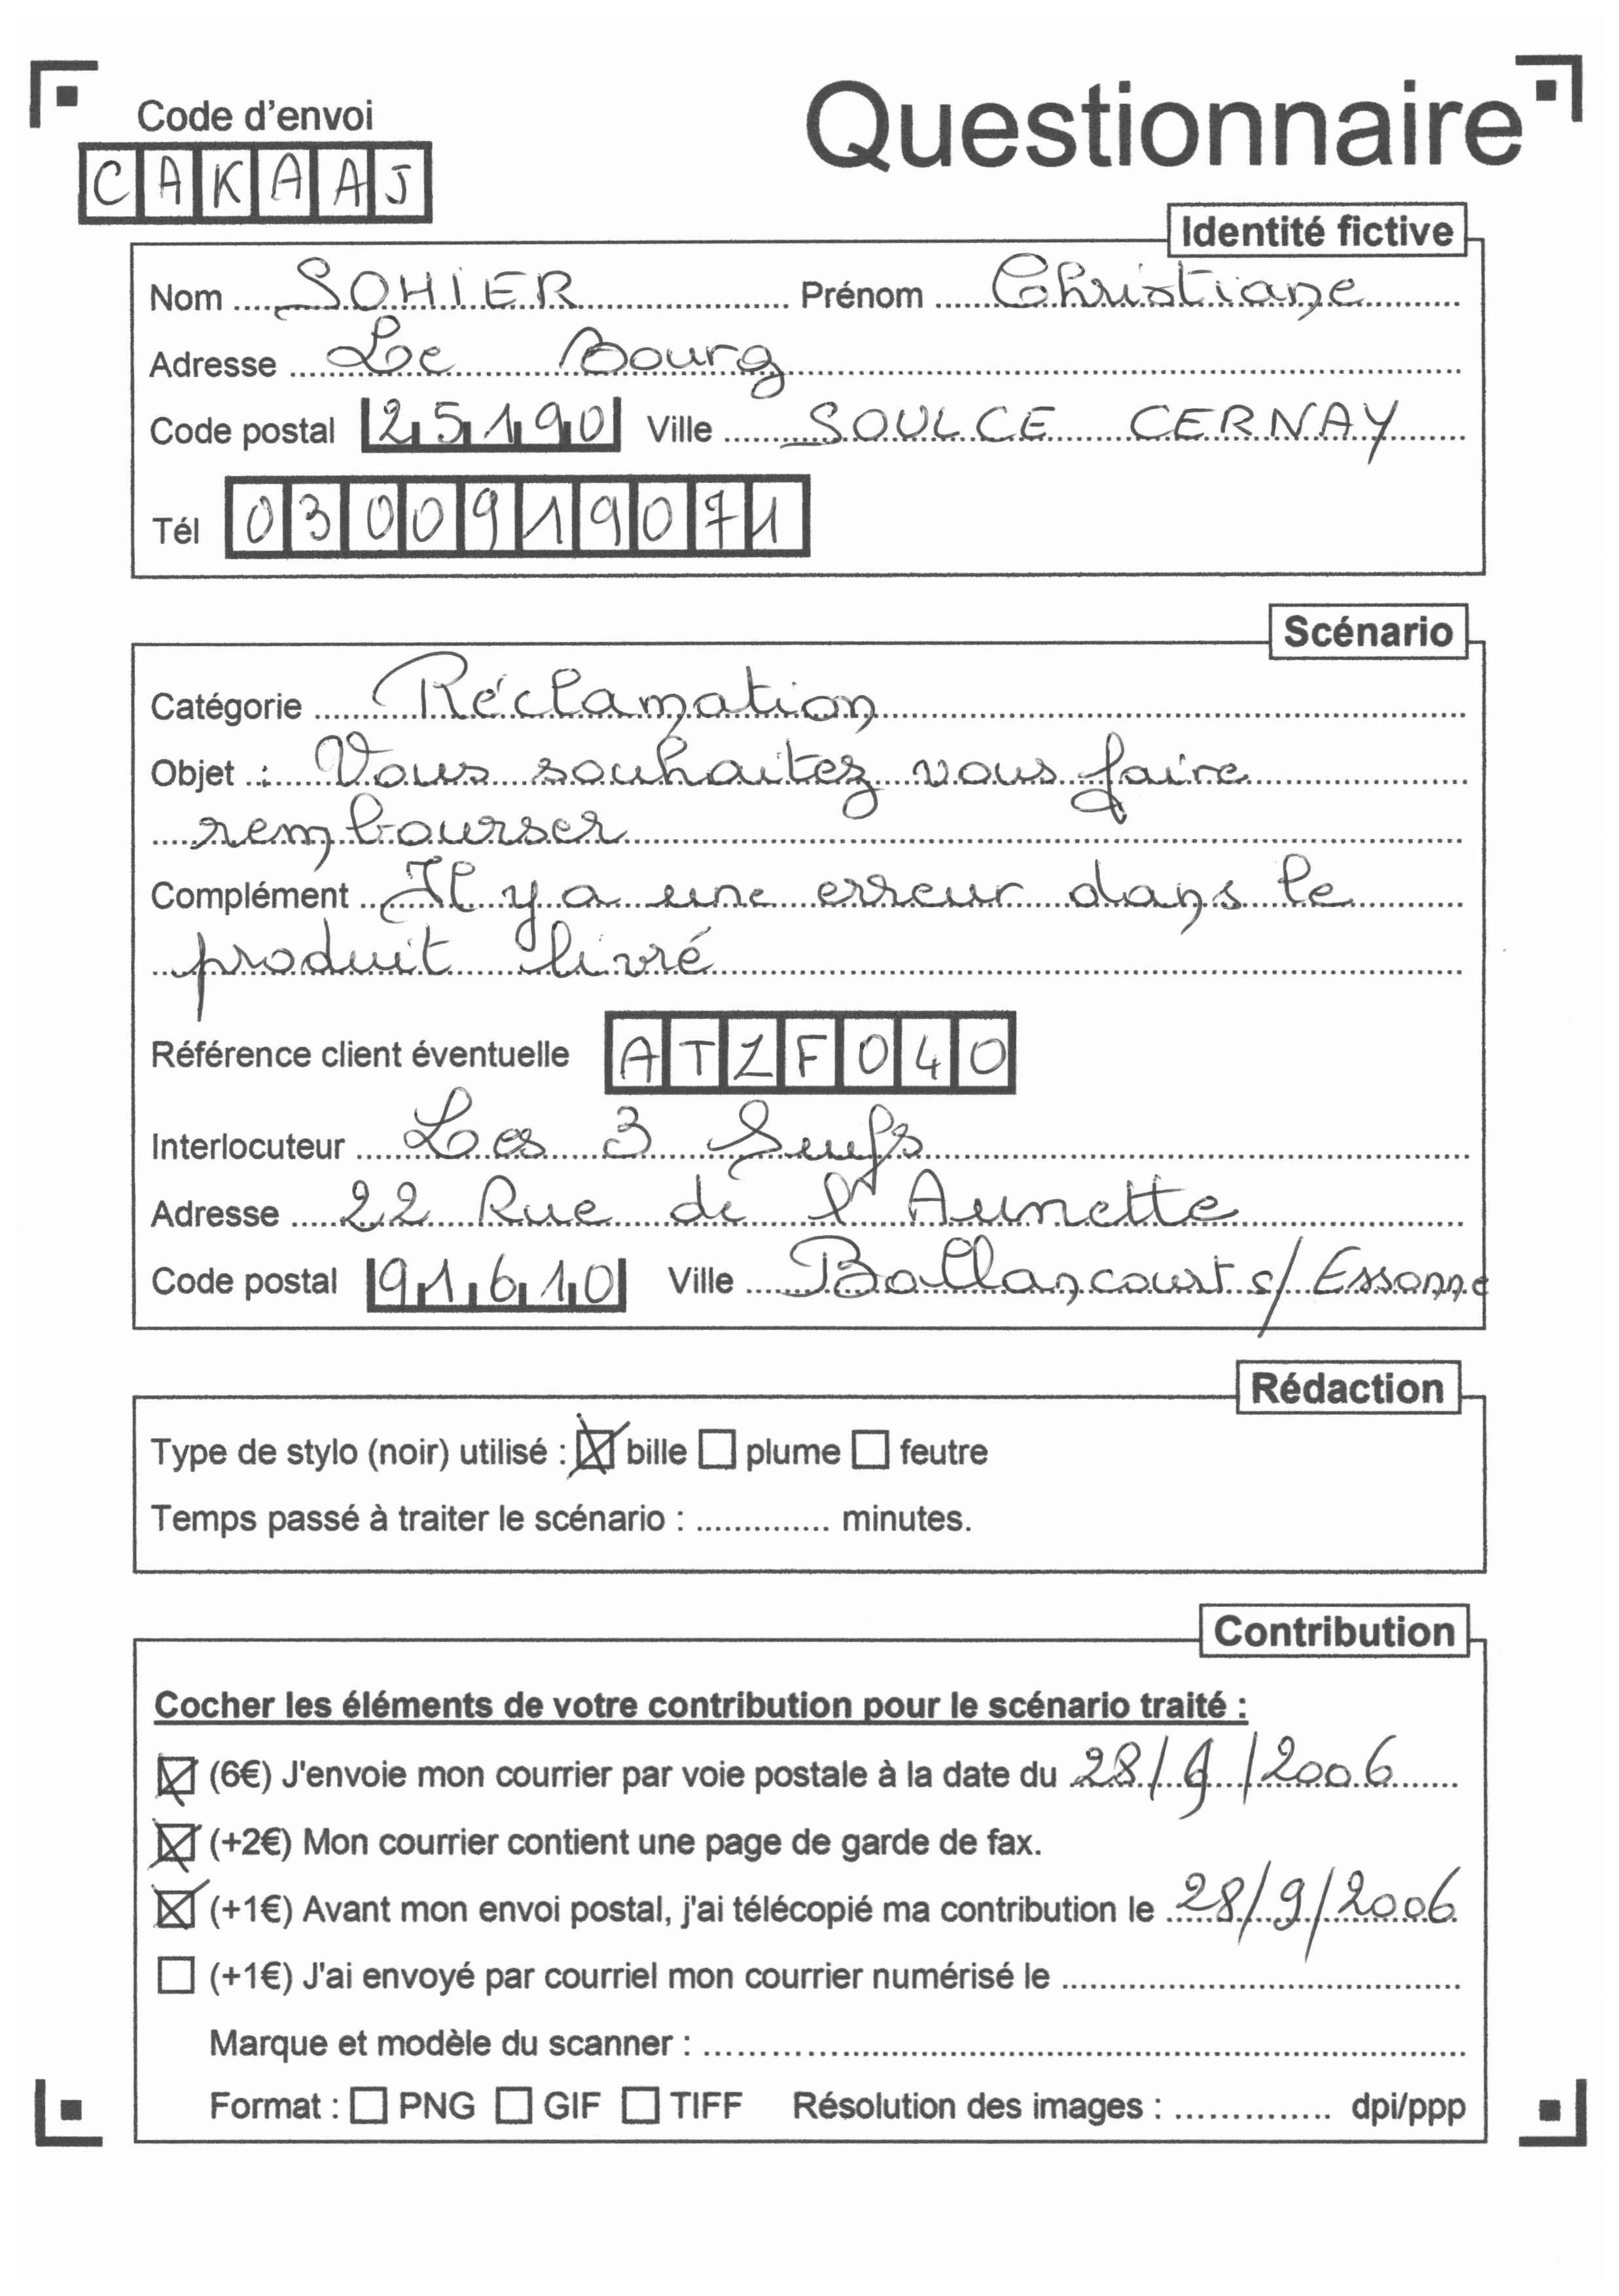 Questionnaire
Code d'envoi
CAKAAJ
Identité fictive
Nom SOHIER Prénom Christiane
Adresse Le Bourg
Code postal 25190 Ville SOULCE CERNAY
Tél 0300919071
Scénario
Catégorie Réclamation
Objet : Vous souhaitez vous faire
rembourser
Complément Il y a une erreur dans le
produit livré
Référence client éventuelle ATZF040
Interlocuteur Les 3
Adresse 22 Rue de l'Aunette
Code postal 91610 Ville Ballancourt s/ Essonne
Rédaction
Type de stylo (noir) utilisé : bille plume feutre
Temps passé à traiter le scénario : .............. minutes.
Contribution
Cocher les éléments de votre contribution pour le scénario traité :
(6€) J'envoie mon courrier par voie postale à la date du 28/9/2006
(+2€) Mon courrier contient une page de garde de fax.
(+1€) Avant mon envoi postal, j'ai télécopié ma contribution le 28/9/2006
(+1€) J'ai envoyé par courriel mon courrier numérisé le
Marque et modèle du scanner :
Format : PNG GIF TIFF Résolution des images : .............. dpi/ppp